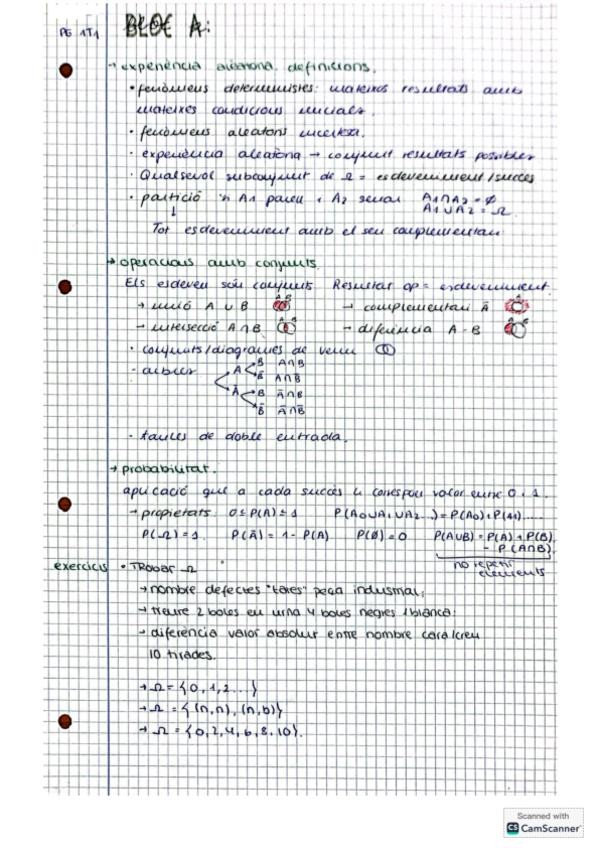 PG 1T1 BLOC A:
→ experiència aleatòria. definicions.
• fenòmens deterministes: mateixos resultats amb
mateixes condicions inicials.
• fenòmens aleatoris incertesa.
• experiència aleatòria → conjunt resultats possibles
• Qualsevol subconjunt de Ω = esdeveniment/succés
• partició A1 parell i A2 senar A1∩A2 = Ø
A1∪A2 = Ω
↓
Tot esdeveniment amb el seu complementari
→ operacions amb conjunts.
Els esdeven són conjunts. Resultat op = esdeveniment
→ unió A ∪ B → complementari Ā
→ intersecció A∩B → diferència A - B
• conjunts/diagrames de venn
- arbres A B A∩B
B̄ A∩B̄
Ā B Ā∩B
B̄ Ā∩B̄
- taules de doble entrada.
→ probabilitat.
aplicació que a cada succés li correspon valor entre 0 i 1.
→ propietats: 0≤P(A)≤1 P(A0∪A1∪A2...) = P(A0)+P(A1)......
P(Ω)=1 P(Ā) = 1 - P(A) P(Ø)=0 P(A∪B) = P(A)+P(B)
- P(A∩B)
no repetir
elements
exercicis • TRobar Ω
→ nombre defectes "tares" peça industrial;
→ treure 2 boles en urna 4 boles negres 1 blanca:
→ diferència valor absolut entre nombre cara/creu
10 tirades.
→ Ω = {0,1,2...}
→ Ω = {(n,n), (n,b)}
→ Ω = {0,2,4,6,8,10}.
Scanned with
CS CamScanner